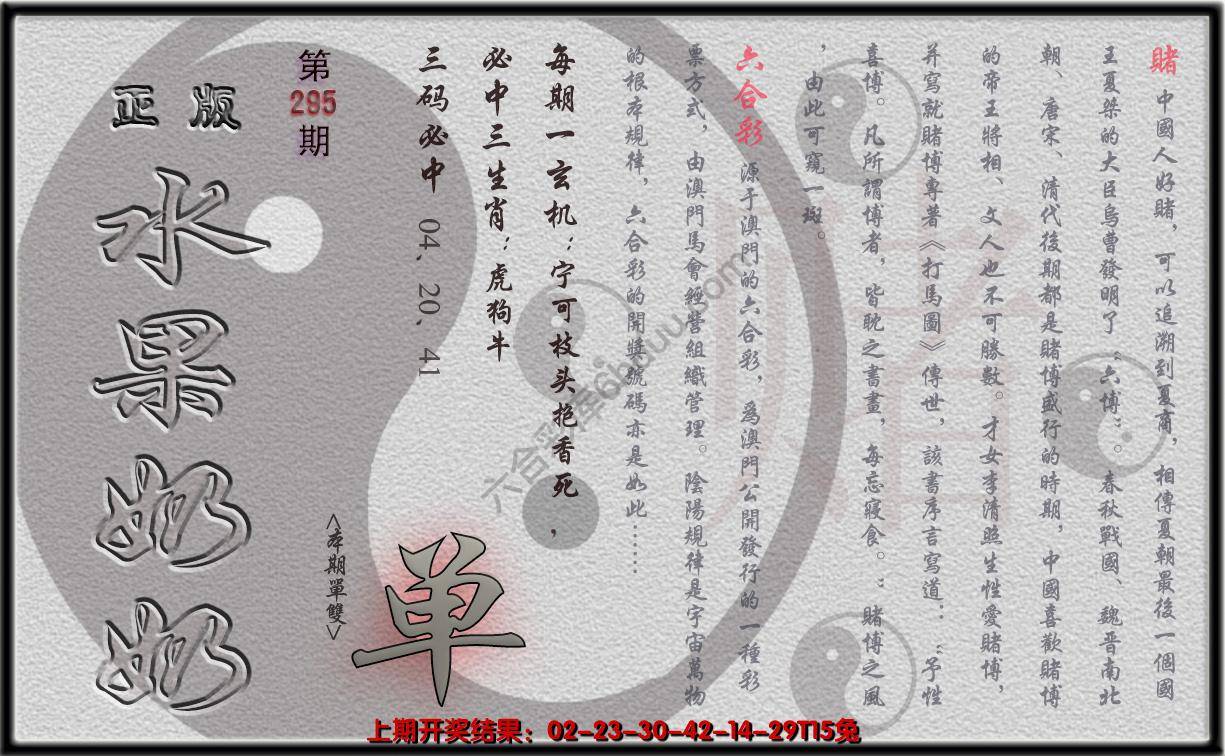 賭 中國人好賭，可以追溯到夏商，相傳夏朝最後一個國
王夏桀的大臣烏曹發明了“六博”。春秋戰國、魏晋南北
朝、唐宋、清代後期都是賭博盛行的時期，中國喜歡賭博
的帝王將相、文人也不可勝數。才女李清照生性愛賭博，
并寫就賭博專著《打馬圖》傳世，該書序言寫道：“予性
喜博。凡所謂博者，皆耽之晝晝，每忘寢食。”賭博之風
，由此可窺一斑。
六合彩 源于澳門的六合彩，爲澳門公開發行的一種彩
票方式，由澳門馬會經營組織管理。陰陽規律是宇宙萬物
的根本規律，六合彩的開獎號碼亦是如此……
每期一玄机：宁可枝头抱香死，
必中三生肖：虎狗牛
三码必中 04、20、41
第
295
期
<本期單雙>
单
正版
水果奶奶
六合彩库6hduu.com
上期开奖结果：02-23-30-42-14-29T15兔